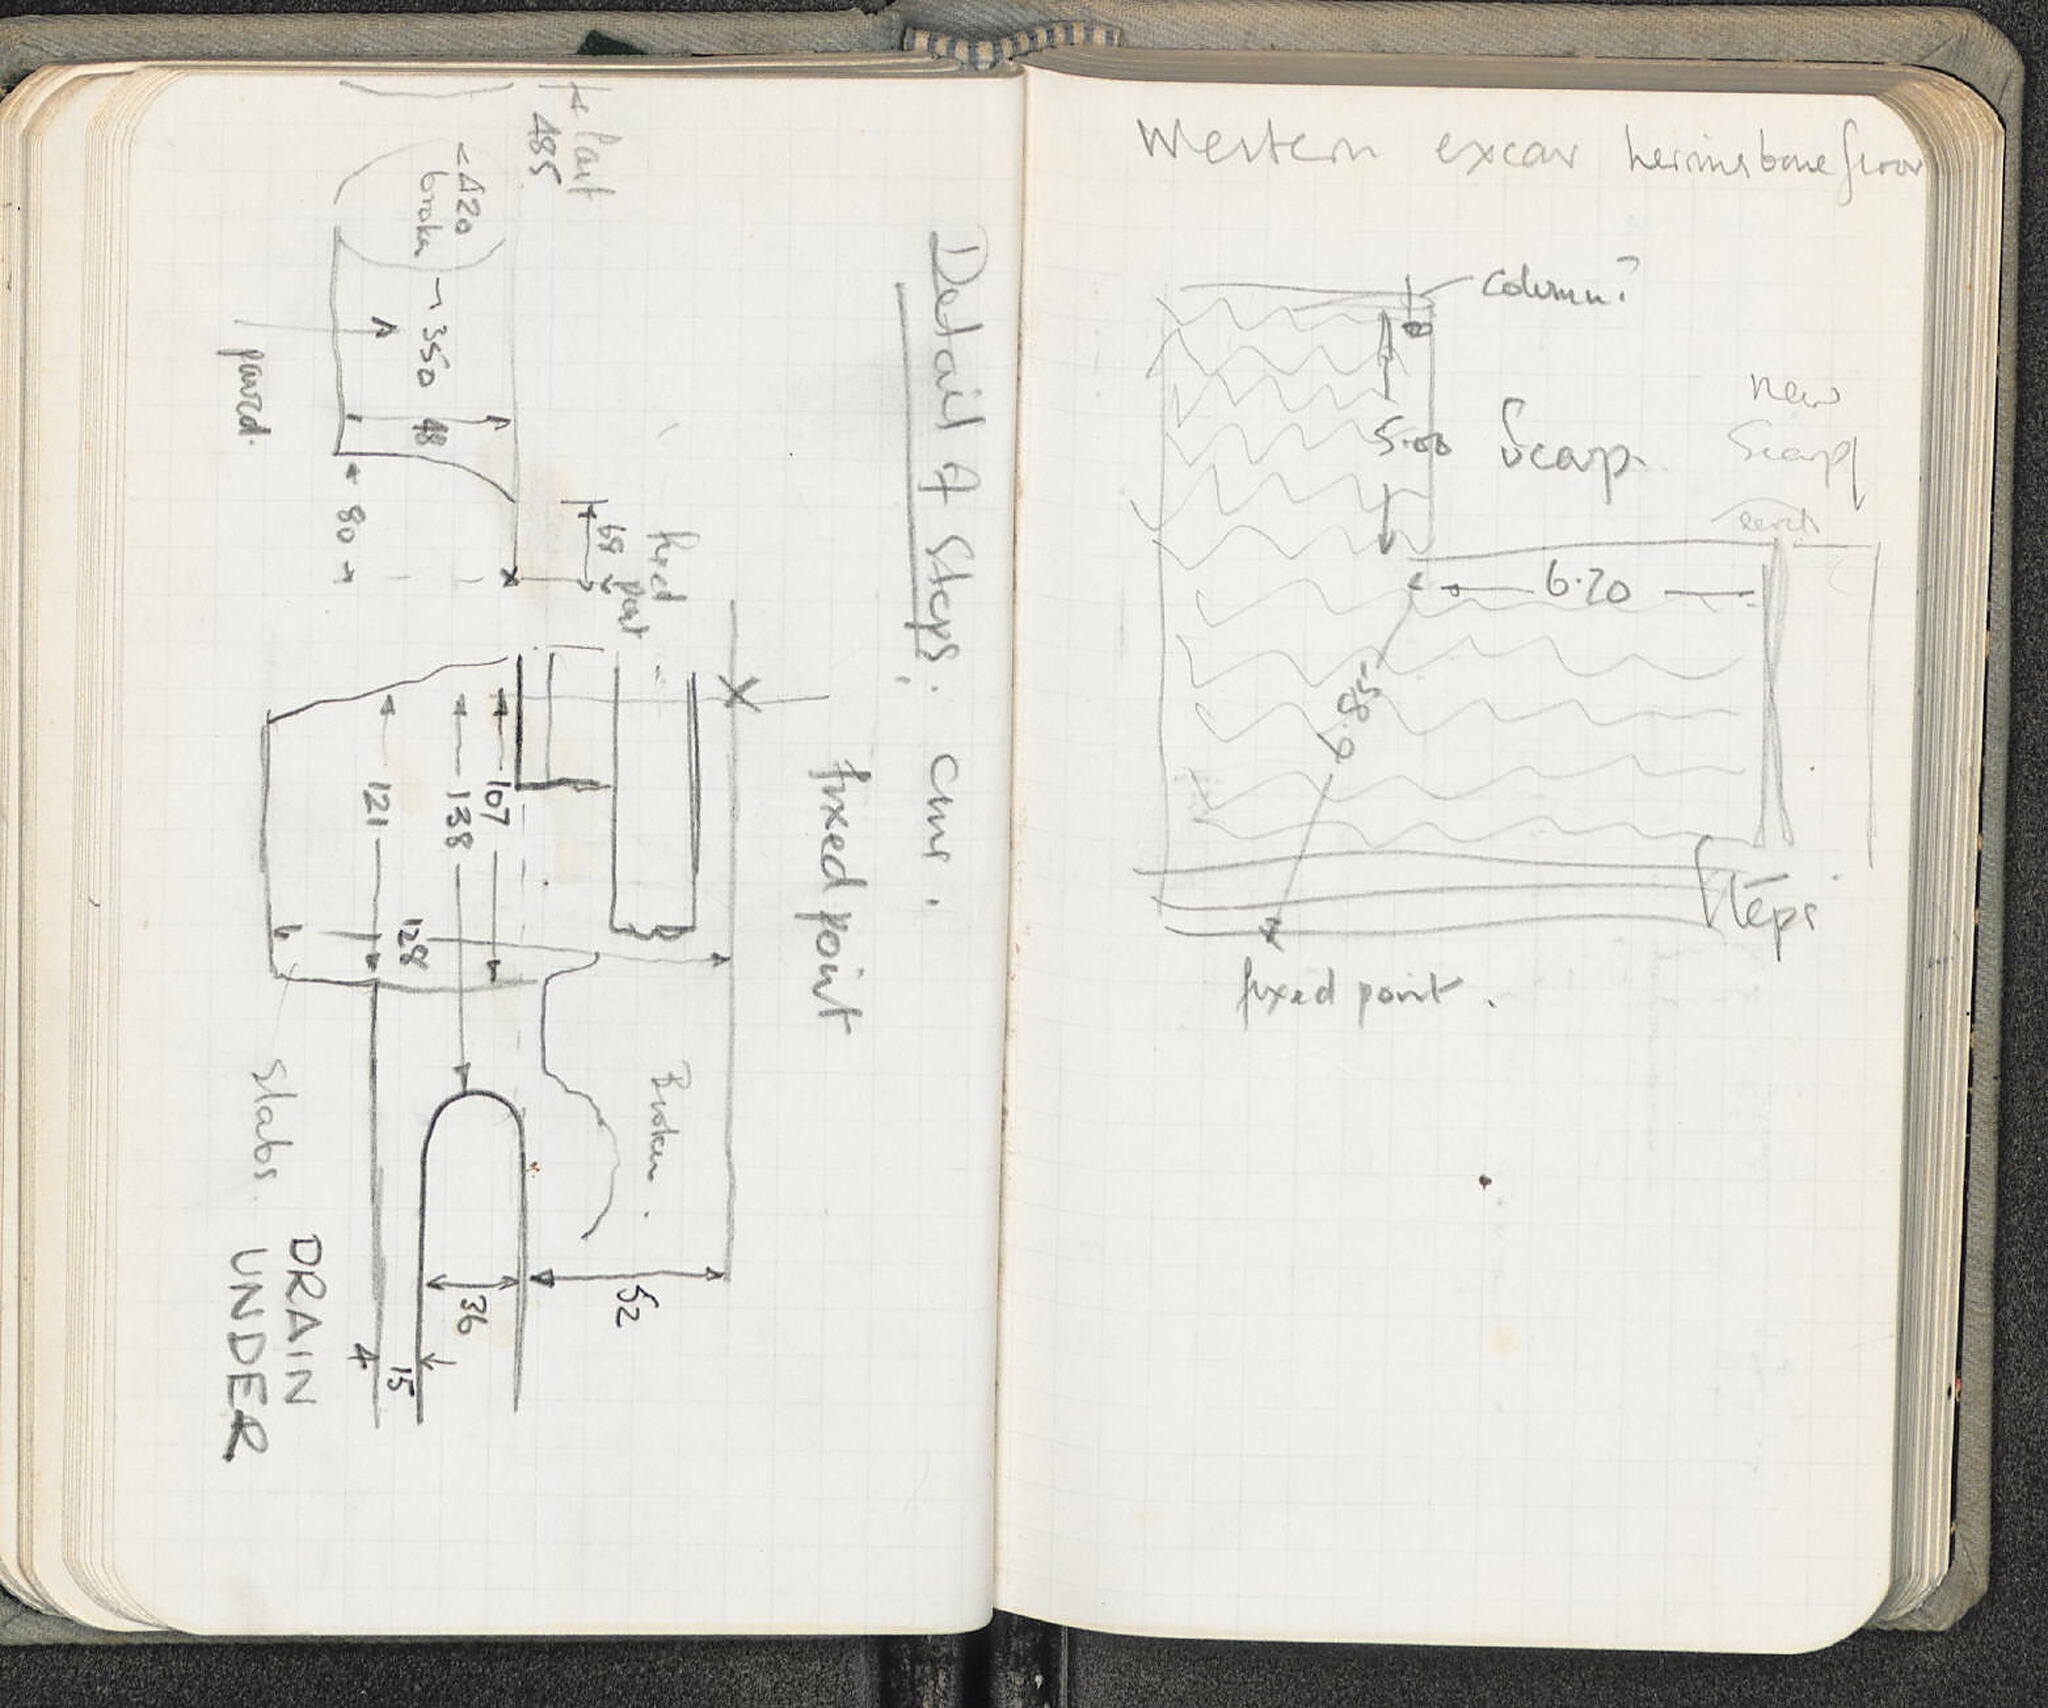 Detail of Steps. cms.
fixed point
485
<420
broken
350
48
paved.
80
69
fixed
point
107
138
121
128
Broken.
Slabs.
52
36
15
DRAIN
UNDER
Western excav herringbone floor
column?
5.00
Scarp.
new
Scarp
6.20
6.85
Steps
fixed point.